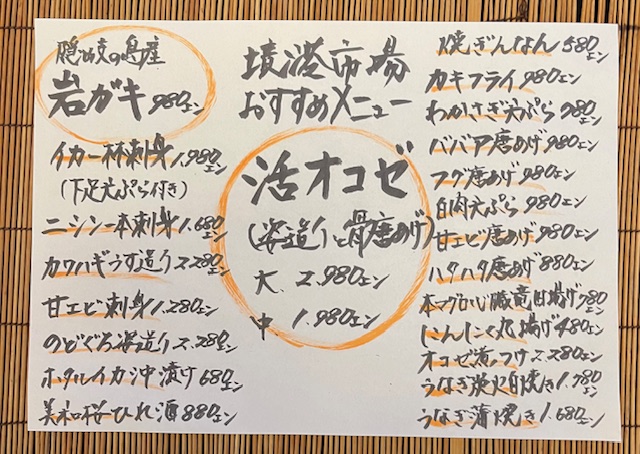 隠岐の島産
岩ガキ 980エン
イカ一杯刺身 1.980エン
(下足天ぷら付き)
ニシン一本刺身 1.680エン
カワハギうす造り 2.280エン
甘エビ刺身 1.280エン
のどぐろ姿造り 2.280エン
ホタルイカ沖漬け 680エン
美和桜ひれ酒 880エン
境港市場
おすすめメニュー
活オコゼ
(姿造りと骨唐あげ)
大 2.980エン
中 1.980エン
焼ぎんなん 580エン
カキフライ 980エン
わかさぎ天ぷら 980エン
ババア唐あげ 980エン
フグ唐あげ 980エン
白肉天ぷら 980エン
甘エビ唐あげ 980エン
ハタハタ唐あげ 880エン
本マグロ 竜田揚げ 780エン
にんにく丸揚げ 480エン
オコゼ煮つけ 2.280エン
うなぎ炭火白焼き 1.780エン
うなぎ蒲焼き 1.680エン